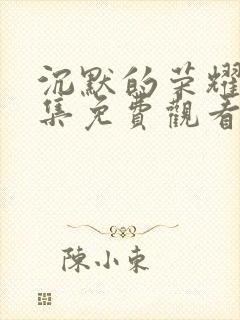 沉默的荣耀
集免費觀看
陳小東